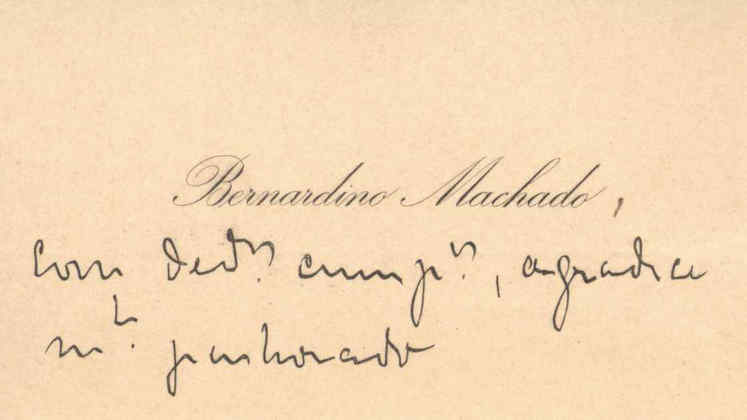 Bernardino Machado,
com ded.os cump.os, agradece
m.to penhorado